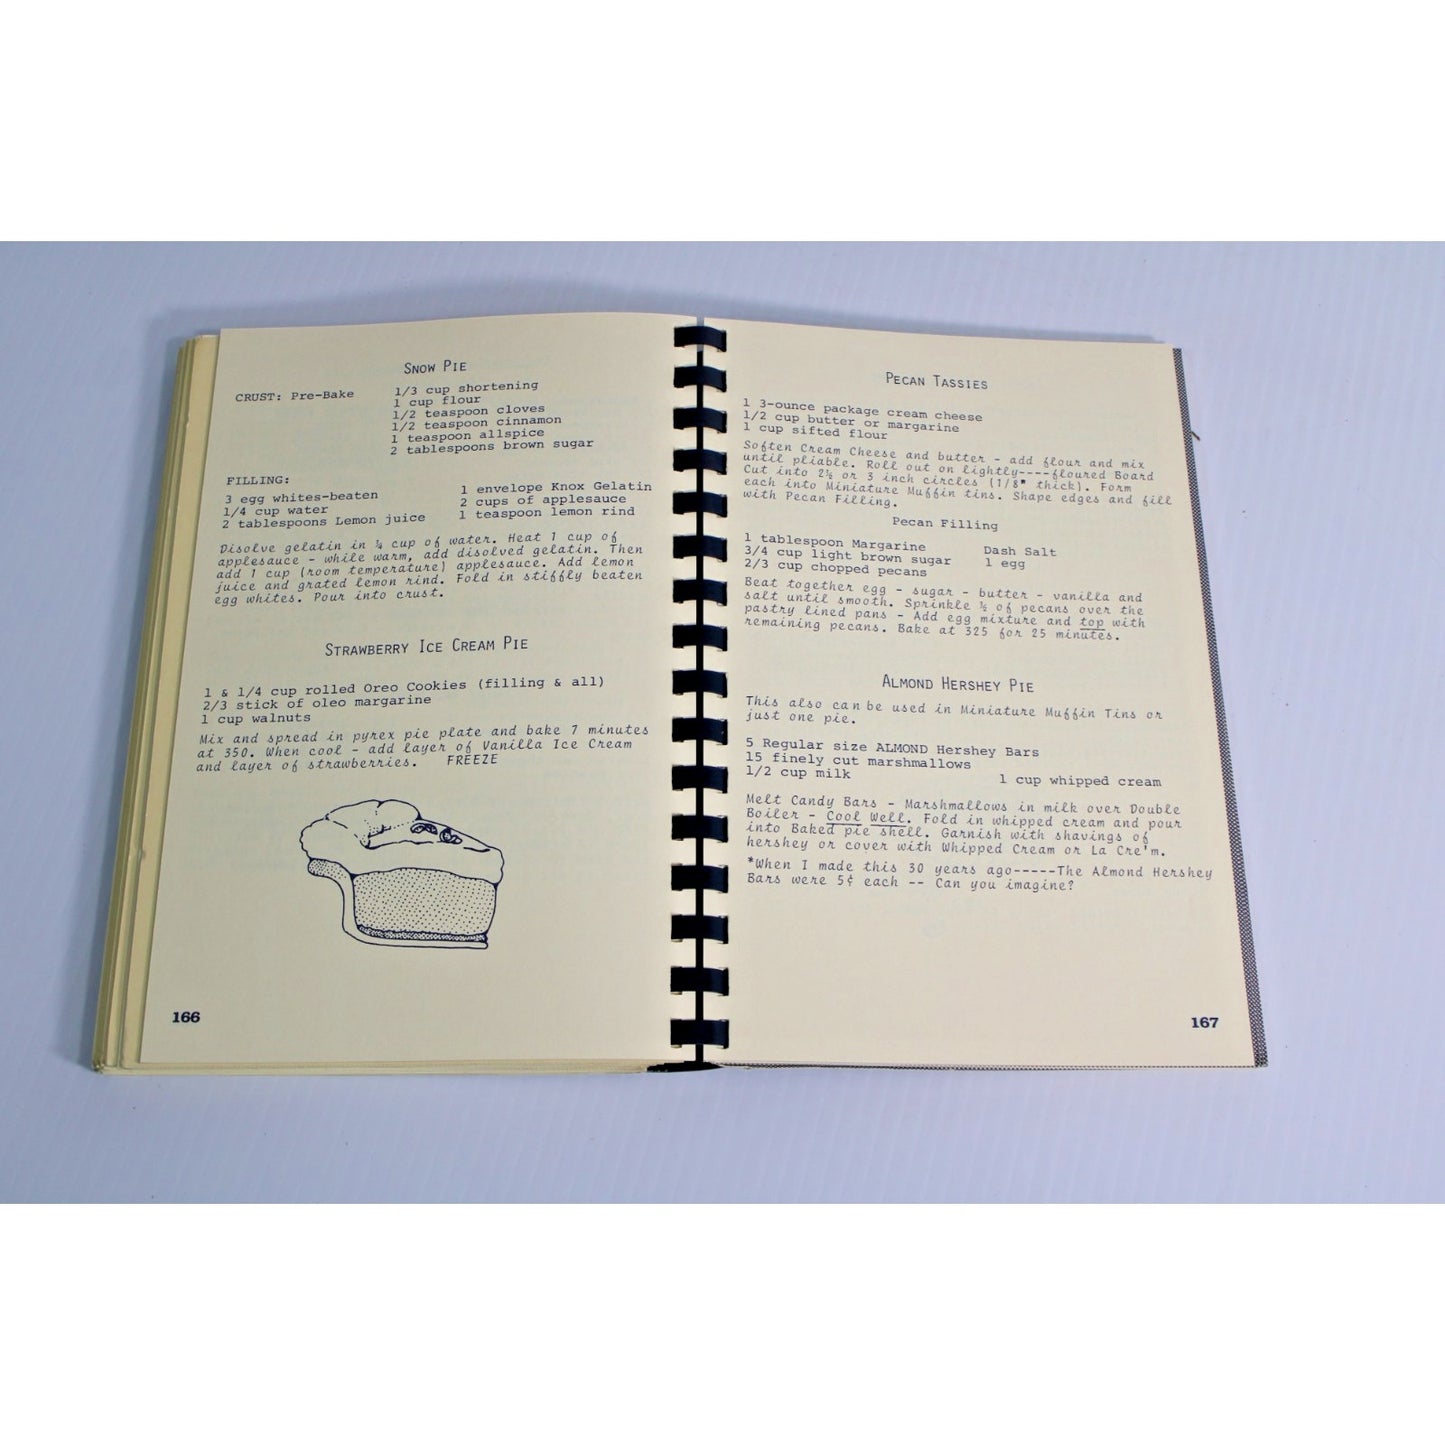 SNOW PIE
CRUST: Pre-Bake
1/3 cup shortening
1 cup flour
1/2 teaspoon cloves
1/2 teaspoon cinnamon
1 teaspoon allspice
2 tablespoons brown sugar
FILLING:
3 egg whites-beaten
1/4 cup water
2 tablespoons Lemon juice
1 envelope Knox Gelatin
2 cups of applesauce
1 teaspoon lemon rind
Disolve gelatin in ¼ cup of water. Heat 1 cup of
applesauce - while warm, add disolved gelatin. Then
add 1 cup (room temperature) applesauce. Add lemon
juice and grated lemon rind. Fold in stiffly beaten
egg whites. Pour into crust.
STRAWBERRY ICE CREAM PIE
1 & 1/4 cup rolled Oreo Cookies (filling & all)
2/3 stick of oleo margarine
1 cup walnuts
Mix and spread in pyrex pie plate and bake 7 minutes
at 350. When cool - add layer of Vanilla Ice Cream
and layer of strawberries. FREEZE
166
PECAN TASSIES
1 3-ounce package cream cheese
1/2 cup butter or margarine
1 cup sifted flour
Soften Cream Cheese and butter - add flour and mix
until pliable. Roll out on lightly----floured Board
Cut into 2½ or 3 inch circles (1/8" thick). Form
each into Miniature Muffin tins. Shape edges and fill
with Pecan Filling.
Pecan Filling
1 tablespoon Margarine
3/4 cup light brown sugar
2/3 cup chopped pecans
Dash Salt
1 egg
Beat together egg - sugar - butter - vanilla and
salt until smooth. Sprinkle ½ of pecans over the
pastry lined pans - Add egg mixture and top with
remaining pecans. Bake at 325 for 25 minutes.
ALMOND HERSHEY PIE
This also can be used in Miniature Muffin Tins or
just one pie.
5 Regular size ALMOND Hershey Bars
15 finely cut marshmallows
1/2 cup milk 1 cup whipped cream
Melt Candy Bars - Marshmallows in milk over Double
Boiler - Cool Well. Fold in whipped cream and pour
into Baked pie shell. Garnish with shavings of
hershey or cover with Whipped Cream or La Cre'm.
*When I made this 30 years ago-----The Almond Hershey
Bars were 5¢ each -- Can you imagine?
167